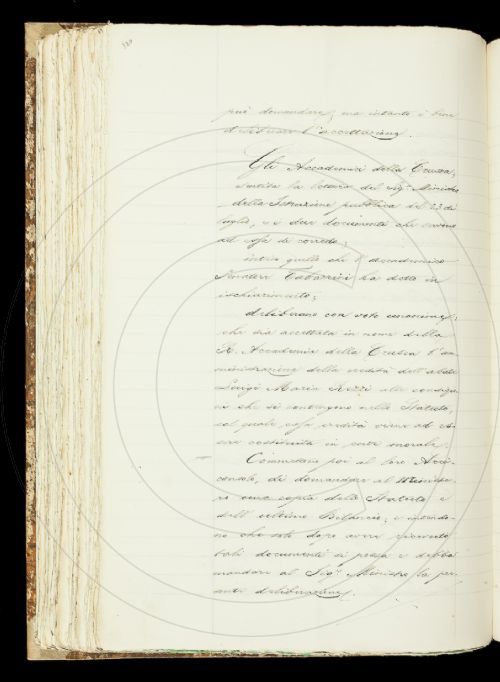 può domandare; ma intanto è bene
deliberare l'accettazione.
Gli Accademici della Crusca,
sentita la lettera del Sig.r Ministro
della Istruzione pubblica del 23 di
luglio, e i due documenti che
ad essa di corredo;
intesa quello che l'accademico
Senatore Tabarrini ha detto in
ischiarimento;
deliberano con voto unanime,
che sia accettata in nome della
R. Accademia della Crusca l'am-
ministrazione della eredità dell'abate
Luigi Maria Rezzi alle condizio-
ni che si contengono nello Statuto,
col quale essa eredità viene ad es-
sere costituita in ente morale.
Commettono poi al loro Arci-
consolo, di domandare al Ministe-
ro una copia dello Statuto e
dell'ultimo Bilancio; e intendo-
no che solo dopo avere ricevuto
tali documenti si possa e debba
mandare al Sig.r Ministro la pre-
sente deliberazione.